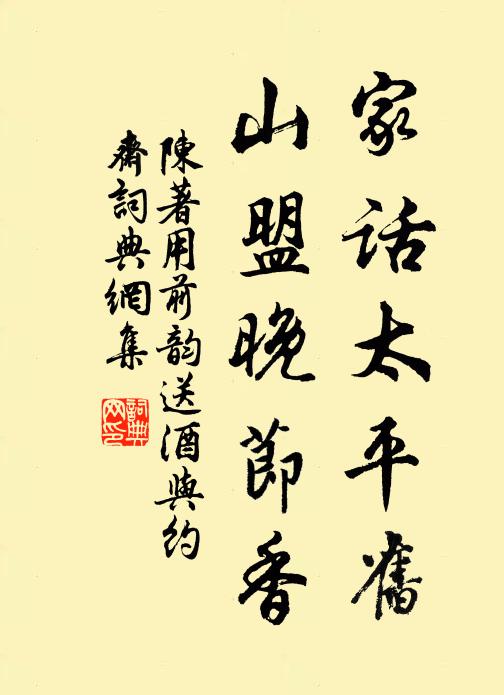 家話太平舊
山盟晚節香
陳著用前韵送酒與約
齋詞典網集
詞典
网印